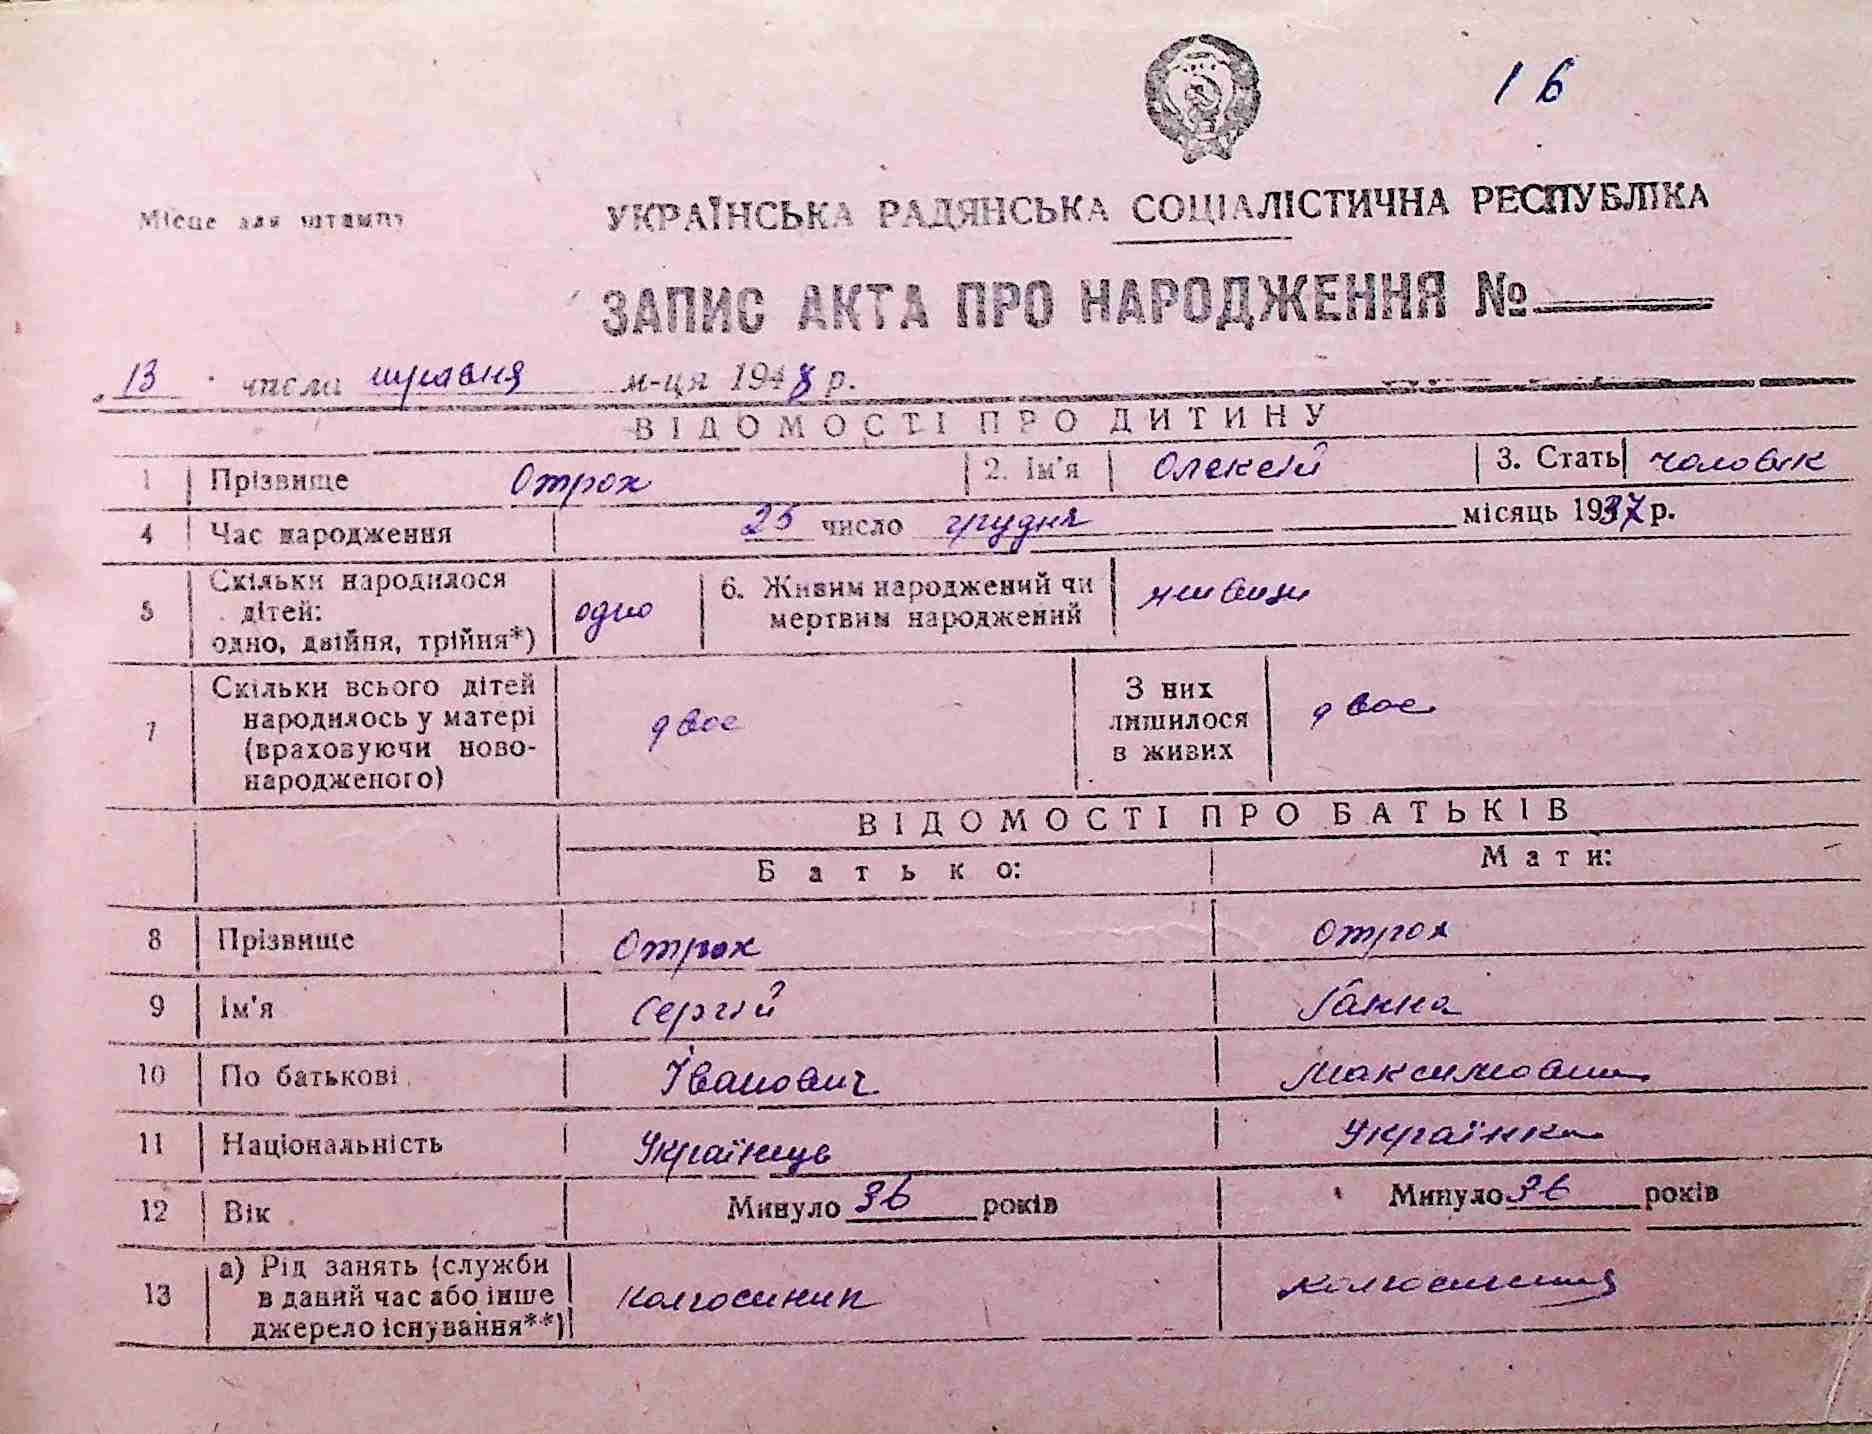 16
Місце для штампу
УКРАЇНСЬКА РАДЯНСЬКА СОЦІАЛІСТИЧНА РЕСПУБЛІКА
ЗАПИС АКТА ПРО НАРОДЖЕННЯ №
„13 числа травня м-ця 1948 р.
ВІДОМОСТІ ПРО ДИТИНУ
1 Прізвище Отрох 2. Ім'я Олексій 3. Стать чоловік
4 Час народження 23 число грудня місяць 1937 р.
5 Скільки народилося дітей: одно, двійня, трійня*) одно 6. Живим народжений чи мертвим народжений живим
7 Скільки всього дітей народилось у матері (враховуючи ново-народженого) двоє З них лишилося в живих двоє
ВІДОМОСТІ ПРО БАТЬКІВ
Батько: Мати:
8 Прізвище Отрох Отрох
9 Ім'я Сергій Ганна
10 По батькові Іванович Максимовна
11 Національність Українець Українка
12 Вік Минуло 36 років Минуло 36 років
13 а) Рід занять (служби в даний час або інше джерело існування**) колгоспник колгоспниця